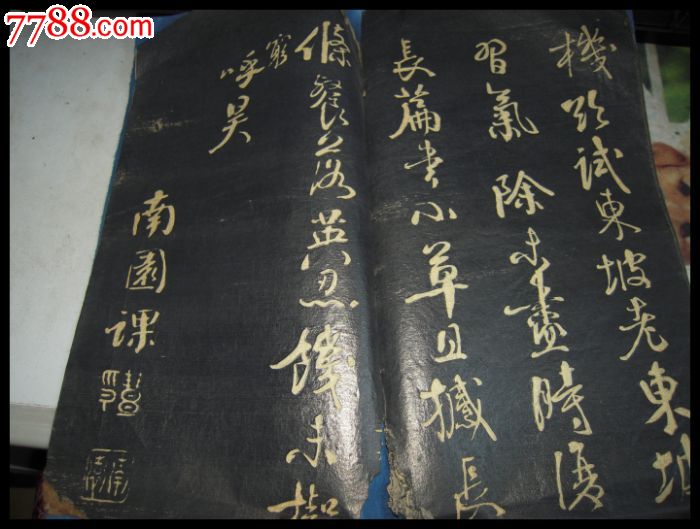 7788.com
機欲試東坡老東坡
習氣除未盡時復
長篇書小草且撼長
條餐落英忍饑未擬
窮
呼昊
南園課